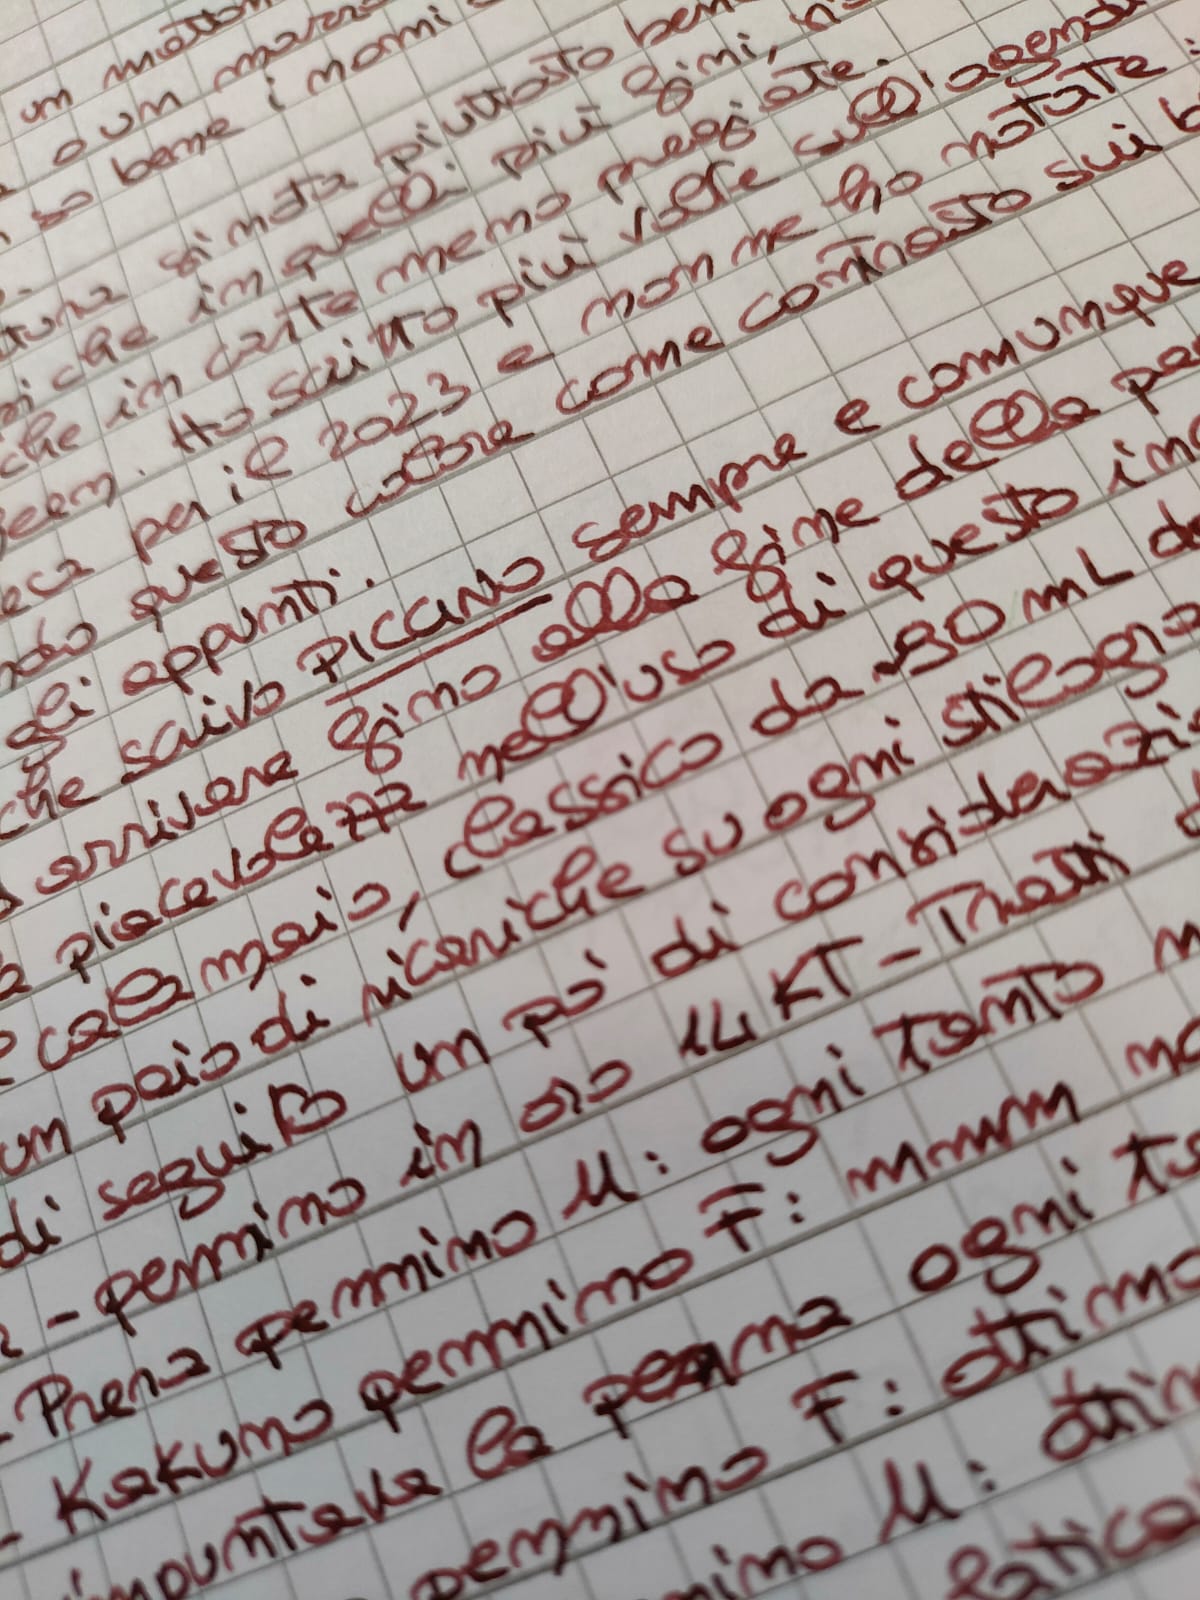 un
o un
so bene i nomi
finita piuttosto bene
che in quelli più fini,
che in carte meno pregiate.
Ho scritto più volte sull'agenda
per il 2023 e non ne ho notate
questo colore come contrasto sui
gli appunti.
che scrivo PICCINO sempre e comunque
arrivare fino alla fine della
piacevolezza nell'uso di questo
calamaio, classico da 30 mL
un paio di ricariche su ogni stilografica
di seguito un po' di considerazioni
- pennino in oro 14 KT - Tratti
- Prera pennino M: ogni tanto
- Kakuno pennino F: mmm
impuntava la penna ogni
pennino F: ottimo
M: